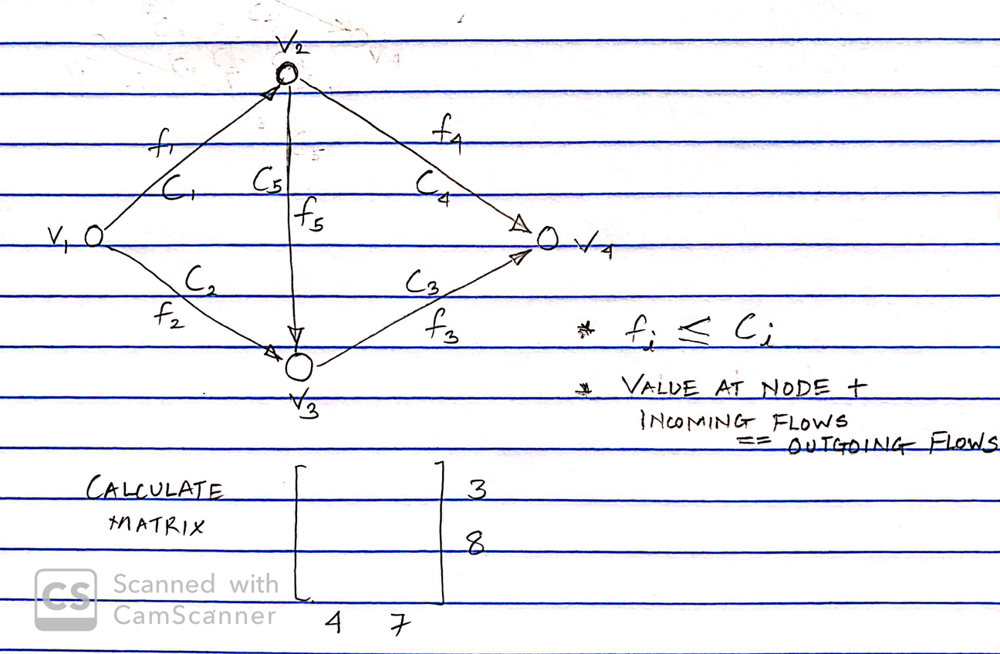 V2
f1
f4
C1
C5
C4
f5
V1
V4
C2
C3
f2
f3
V3
* fi ≤ Ci
* VALUE AT NODE +
INCOMING FLOWS
== OUTGOING FLOWS
CALCULATE
MATRIX
3
8
4 7
CS Scanned with
CamScanner